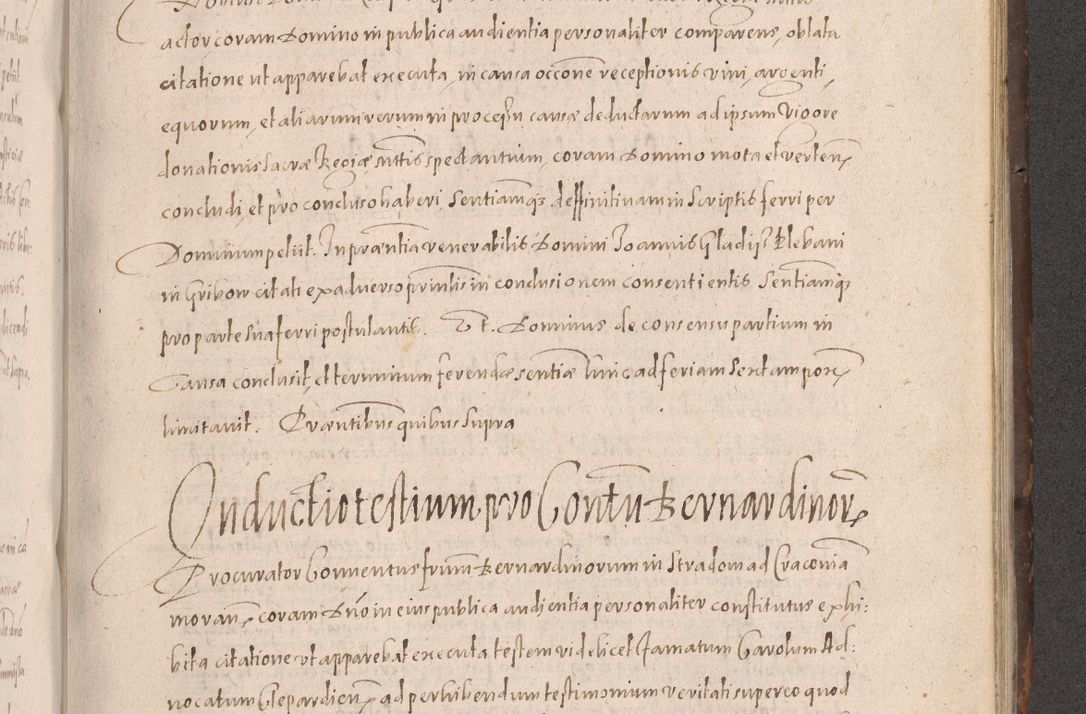 actor coram Domino in publica audientia personaliter comparens, oblata
citatione ut apparebat executa, in causa occone receptionis vini, argenti,
equorum, et aliarum rerum in processu causæ deductarum ad ipsum vigore
donationis Sacræ Regiæ Mttis spectantium, coram Domino mota et verten
concludi, et pro concluso haberi, Sentiamqz deffinitivam in Scriptis ferri per
Dominum petiit. In præntia venerabilis Domini Joannis Gladisz Plebani
in Gribow citati ex adverso prinlis in conclusionem consentientis Sentiamqz
pro parte sua ferri postulantis. Et. Dominus de consensu partium in
Causa conclusit, et terminum ferendæ sentiæ hinc ad feriam Sextam poren
limitavit. Præntibus quibus supra
Inductio testium pro Contu Bernardinor
Procurator Conventus frum Bernardinorum in Stradom ad Cracovia
moran coram Dno in eius publica audientia personaliter constitutus exhi:
bita citatione ut apparebat executa testem videlicet famatum Carolum Ad:
vocatum Clepardien ad perhibendum testimonium veritati super eo quod